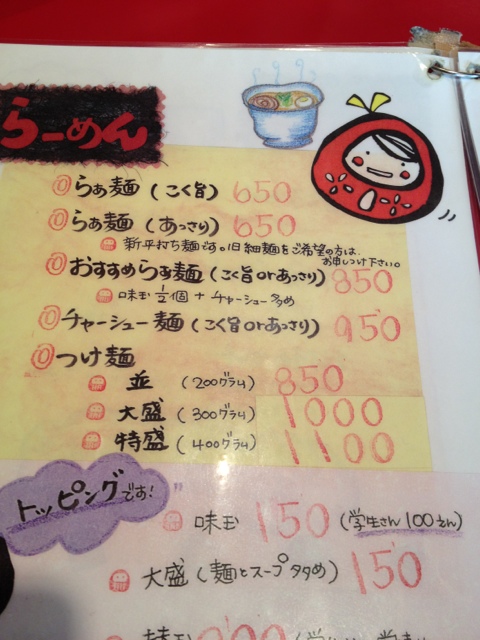 らーめん
らぁ麺 (こく旨) 650
らぁ麺 (あっさり) 650
新平打ち麺です。旧細麺をご希望の方は、
お申しつけ下さい。
おすすめらぁ麺 (こく旨orあっさり) 850
味玉 1/2個 + チャーシュー多め
チャーシュー麺 (こく旨orあっさり) 950
つけ麺
並 (200グラム) 850
大盛 (300グラム) 1000
特盛 (400グラム) 1100
トッピングです!
味玉 150 (学生さん100えん)
大盛 (麺とスープ多め) 150